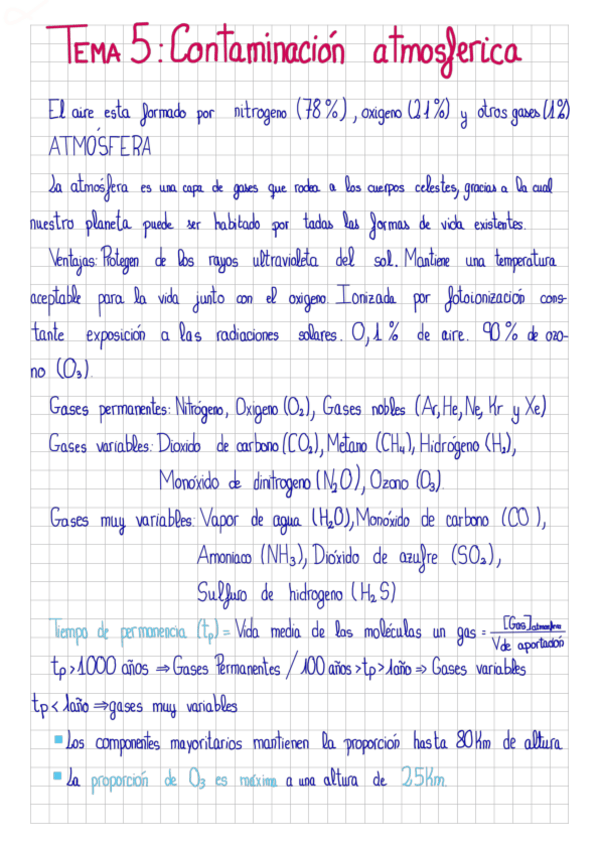 TEMA 5: Contaminación atmosferica
El aire esta formado por nitrogeno (78%), oxigeno (21%) y otros gases (1%)
ATMÓSFERA
La atmósfera es una capa de gases que rodea a los cuerpos celestes, gracias a la cual
nuestro planeta puede ser habitado por todas las formas de vida existentes.
Ventajas: Protegen de los rayos ultravioleta del sol. Mantiene una temperatura
aceptable para la vida junto con el oxigeno. Ionizada por fotoionización cons-
tante exposición a las radiaciones solares. 0,1% de aire. 90% de ozo-
no (O₃).
Gases permanentes: Nitrógeno, Oxigeno (O₂), Gases nobles (Ar, He, Ne, Kr y Xe)
Gases variables: Dioxido de carbono (CO₂), Metano (CH₄), Hidrógeno (H₂),
Monóxido de dinitrogeno (N₂O), Ozono (O₃).
Gases muy variables: Vapor de agua (H₂O), Monóxido de carbono (CO),
Amoniaco (NH₃), Dióxido de azufre (SO₂),
Sulfuro de hidrogeno (H₂S)
Tiempo de permanencia (tp) = Vida media de las moléculas un gas = [Gas]atmosfera / V de aportación
tp > 1000 años ⇒ Gases Permanentes / 100 años > tp > 1año ⇒ Gases variables
tp < 1año ⇒ gases muy variables
▪ Los componentes mayoritarios mantienen la proporción hasta 80Km de altura
▪ La proporción de O₃ es máxima a una altura de 25Km.